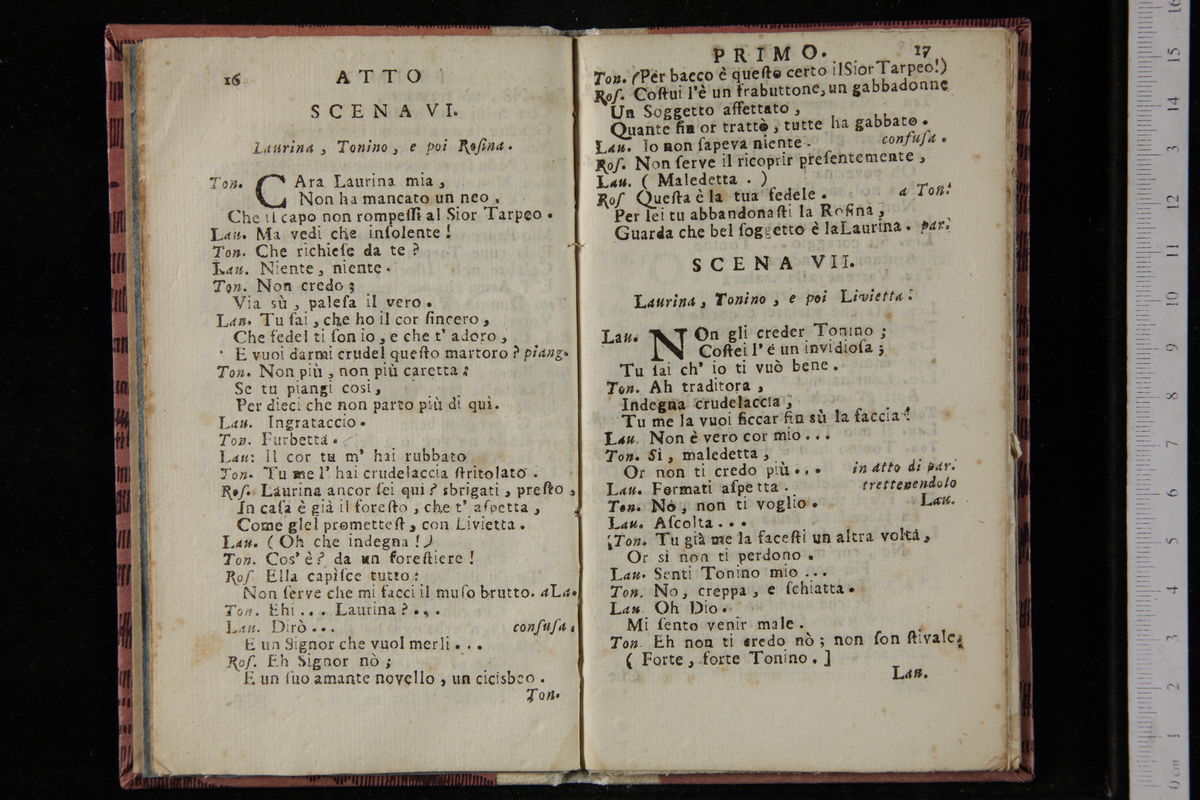 16 ATTO
SCENA VI.
Laurina, Tonino, e poi Rosina.
Ton. CAra Laurina mia,
Non ha mancato un neo,
Che il capo non rompessi al Sior Tarpeo.
Lau. Ma vedi che insolente!
Ton. Che richiese da te?
Lau. Niente, niente.
Ton. Non credo;
Via sù, palesa il vero.
Lau. Tu sai, che ho il cor sincero,
Che fedel ti son io, e che t' adoro,
E vuoi darmi crudel questo martoro? piang.
Ton. Non più, non più caretta:
Se tu piangi così,
Per dieci che non parto più di quì.
Lau. Ingrataccio.
Ton. Furbetta.
Lau: Il cor tu m' hai rubbato
Ton. Tu me l' hai crudelaccia stritolato.
Ros. Laurina ancor sei qui? sbrigati, presto,
In casa è già il foresto, che t' aspetta,
Come glel promettest, con Livietta.
Lau. (Oh che indegna!)
Ton. Cos' è? da un forestiere!
Ros. Ella capisce tutto:
Non serve che mi facci il muso brutto. aLa.
Ton. Ehi... Laurina?...
Lau. Dirò... confusa.
E un Signor che vuol merli...
Ros. Eh Signor nò;
E un suo amante novello, un cicisbeo.
Ton.
PRIMO. 17
Ton. (Per bacco è questo certo ilSior Tarpeo!)
Ros. Costui l'è un frabuttone, un gabbadonne
Un Soggetto affettato,
Quante fin or trattò, tutte ha gabbato.
Lau. Io non sapeva niente. confusa.
Ros. Non serve il ricoprir presentemente,
Lau. (Maledetta.)
Ros Questa è la tua fedele. a Ton.
Per lei tu abbandonasti la Rosina,
Guarda che bel soggetto è laLaurina. par.
SCENA VII.
Laurina, Tonino, e poi Livietta.
Lau. NOn gli creder Tonino;
Costei l' è un invidiosa;
Tu sai ch' io ti vuò bene.
Ton. Ah traditora,
Indegna crudelaccia,
Tu me la vuoi ficcar fin sù la faccia!
Lau. Non è vero cor mio...
Ton. Sì, maledetta,
Or non ti credo più... in atto di par.
Lau. Formati aspetta. trettenendolo
Ton. Nò, non ti voglio. Lau.
Lau. Ascolta...
Ton. Tu già me la facesti un altra volta,
Or sì non ti perdono.
Lau. Senti Tonino mio...
Ton. No, creppa, e schiatta.
Lau Oh Dio.
Mi sento venir male.
Ton. Eh non ti credo nò; non son stivale.
(Forte, forte Tonino.]
Lau.
0 cm 1 2 3 4 5 6 7 8 9 10 11 12 13 14 15 16